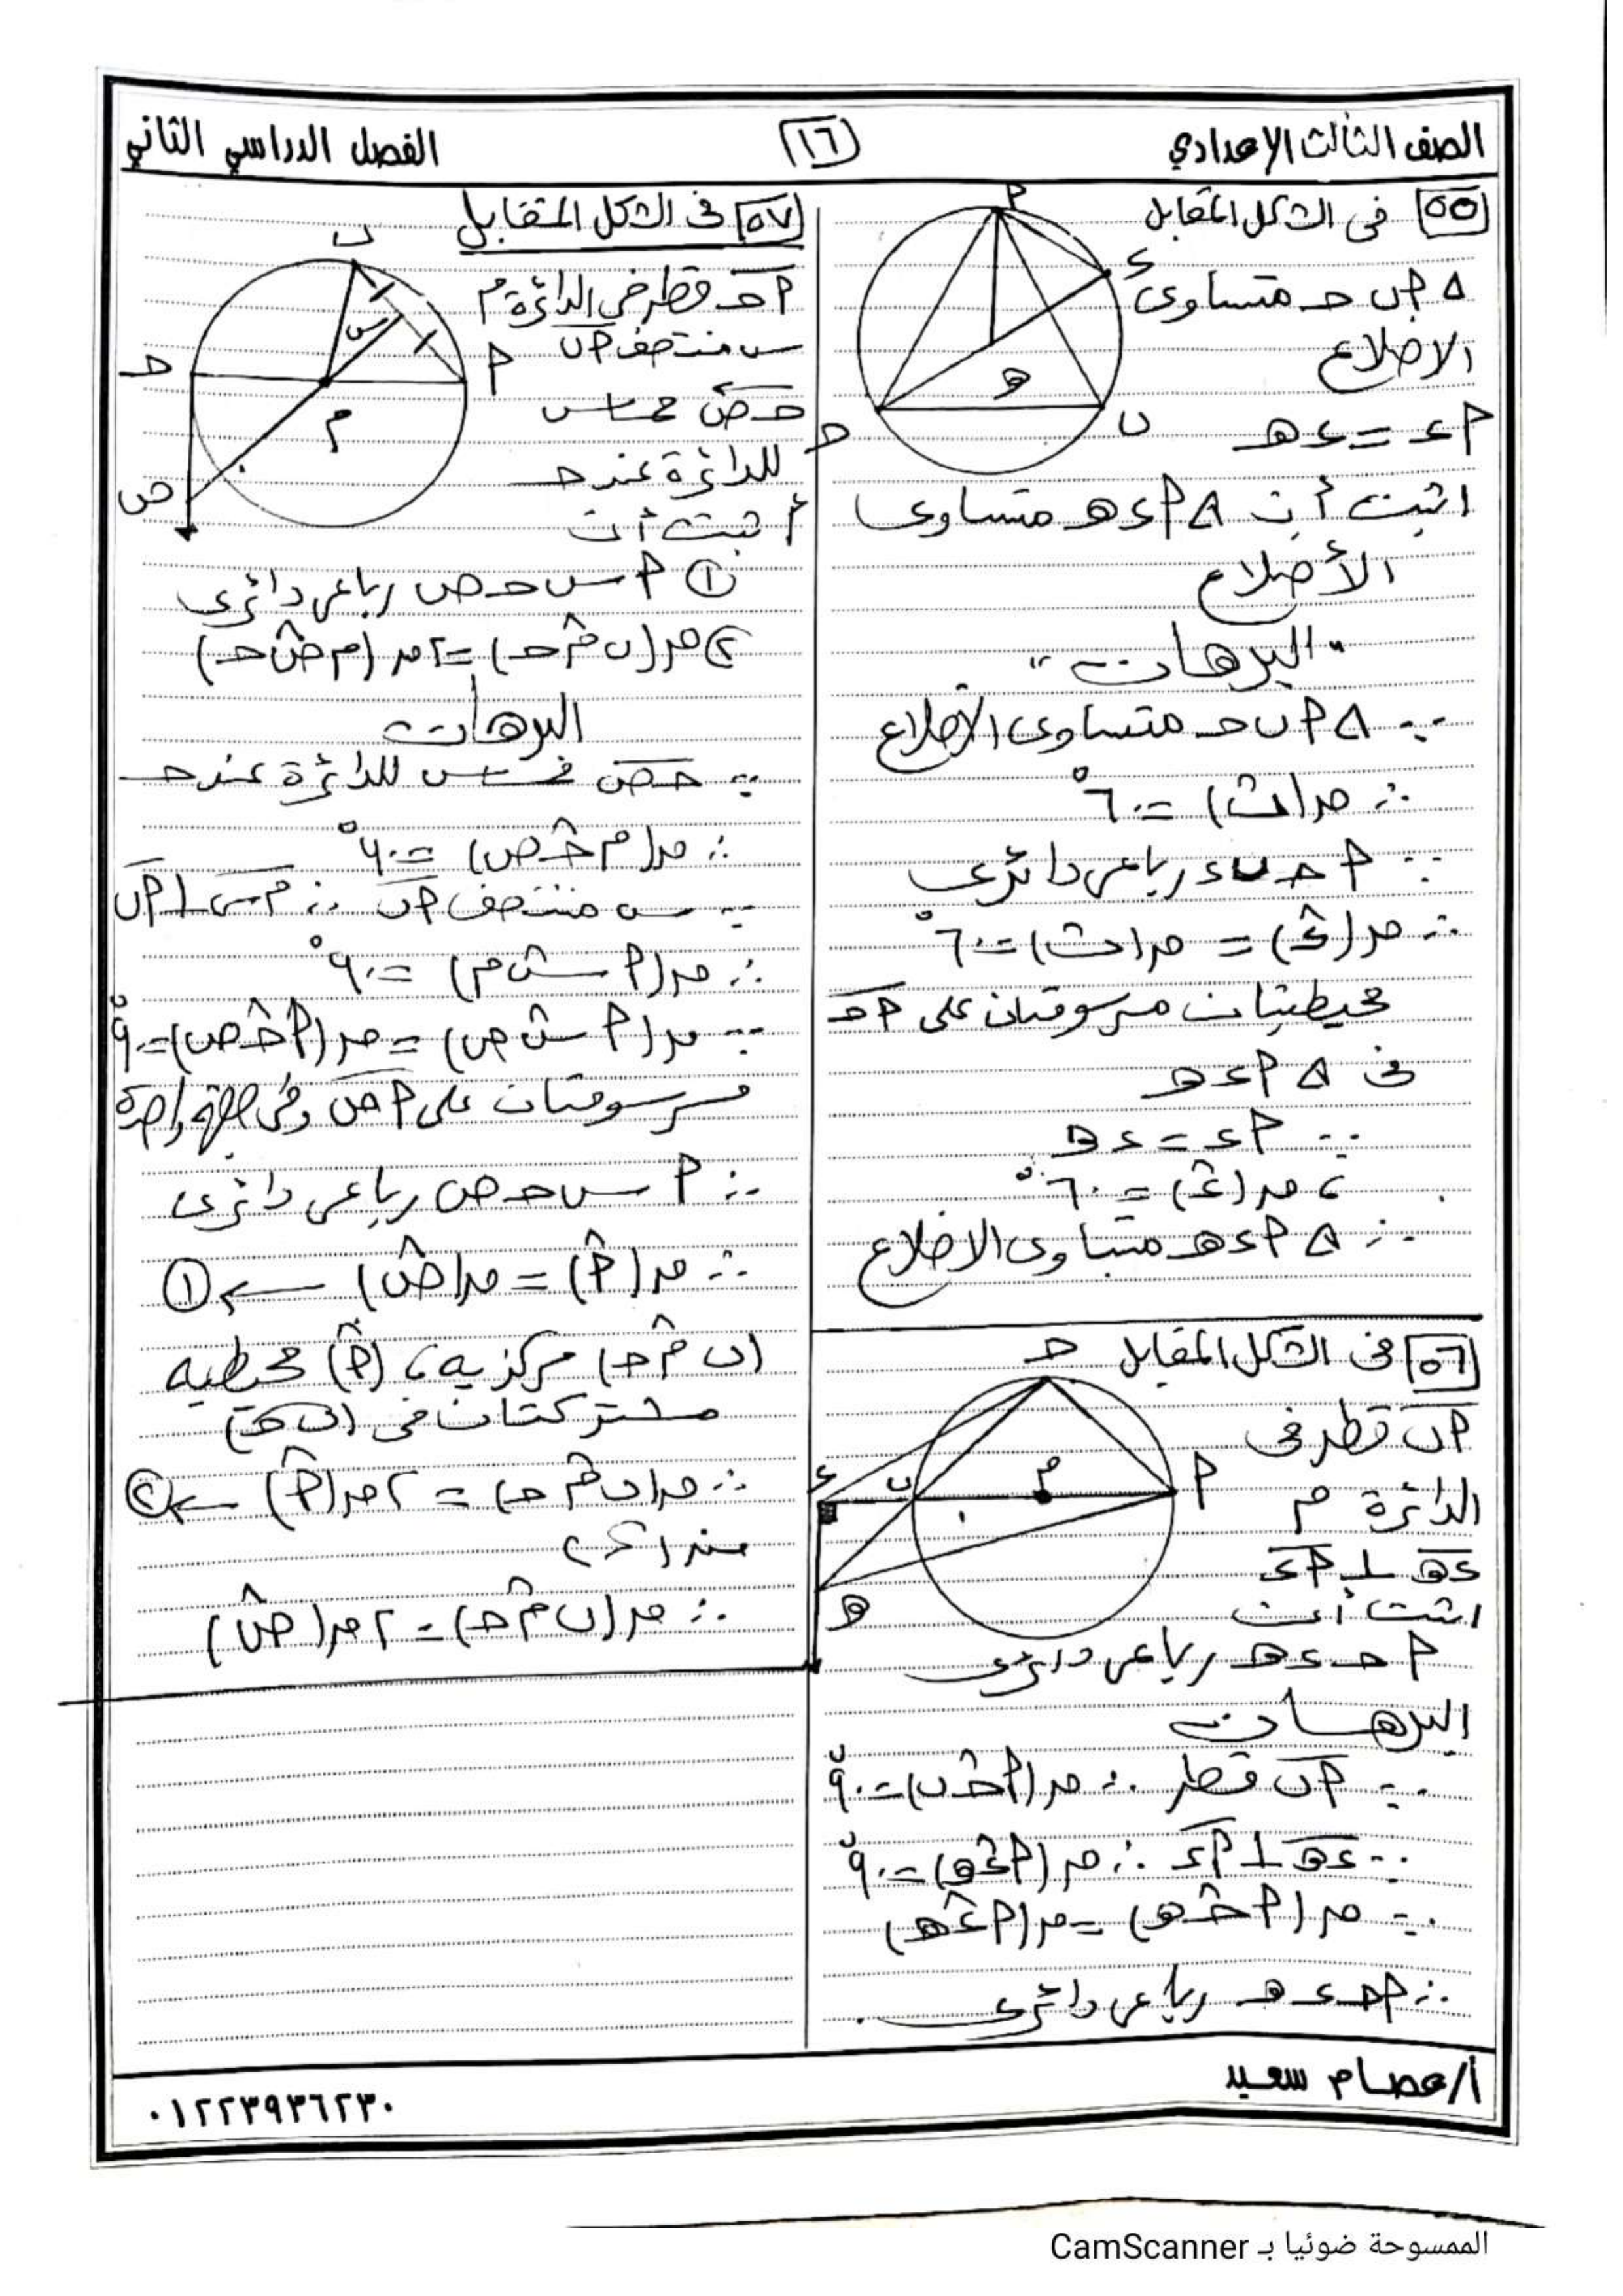 الصف الثالث الإعدادي
١٦
الفصل الدراسي الثاني
٥٥ فى الشكل المقابل
△ أ ب حـ متساوى
الاضلاع
أ ء = ء هـ
اثبت أن △ أ ء هـ متساوى
الأضلاع
"البرهان"
∵ △ أ ب حـ متساوى الأضلاع
∴ مه (ب̂) = ٦٠°
∵ أ حـ ب ء رباعى دائرى
∴ مه (ء̂) = مه (ب̂) = ٦٠°
محيطيتان مرسومتان على أ حـ
فى △ أ ء هـ
∵ أ ء = ء هـ
، مه (ء̂) = ٦٠°
∴ △ أ ء هـ متساوى الاضلاع
أ
ء
هـ
ب
حـ
٥٦ فى الشكل المقابل
أ ب قطر فى
الدائرة م
ء هـ ⊥ أ ء
اثبت أن
أ حـ ء هـ رباعى دائرى
البرهان
∵ أ ب قطر ∴ مه (أ حـ̂ ب) = ٩٠°
∵ ء هـ ⊥ أ ء ∴ مه (أ ء̂ هـ) = ٩٠°
∵ مه (أ حـ̂ هـ) = مه (أ ء̂ هـ)
∴ أ حـ ء هـ رباعى دائرى
حـ
ء
ب
م
أ
هـ
٥٧ فى الشكل المقابل
أ حـ قطر فى الدائرة م
س منتصف أ ب
حـ ص مماس
للدائرة عند حـ
أثبت أن
① أ س حـ ص رباعى دائرى
② مه (ب م̂ حـ) = ٢ مه (م ص̂ حـ)
البرهان
∵ حـ ص مماس للدائرة عند حـ
∴ مه (م حـ̂ ص) = ٩٠°
∵ س منتصف أ ب ∴ م س ⊥ أ ب
∴ مه (أ س̂ م) = ٩٠°
∵ مه (أ س̂ ص) = مه (أ حـ̂ ص) = ٩٠°
مرسومتان على أ ص وفى جهة واحدة
∴ أ س حـ ص رباعى دائرى
∴ مه (أ̂) = مه (ص̂) ← ①
(ب م̂ حـ) مركزية ، (أ̂) محيطيه
مشتركتان فى (ب حـ)
∴ مه (ب م̂ حـ) = ٢ مه (أ̂) ← ②
من ١ ، ٢
∴ مه (ب م̂ حـ) = ٢ مه (ص̂)
ب
س
حـ
أ
م
ص
أ/عصام سعيد
٠١٢٢٣٩٣٦٢٣٠
الممسوحة ضوئيا بـ CamScanner